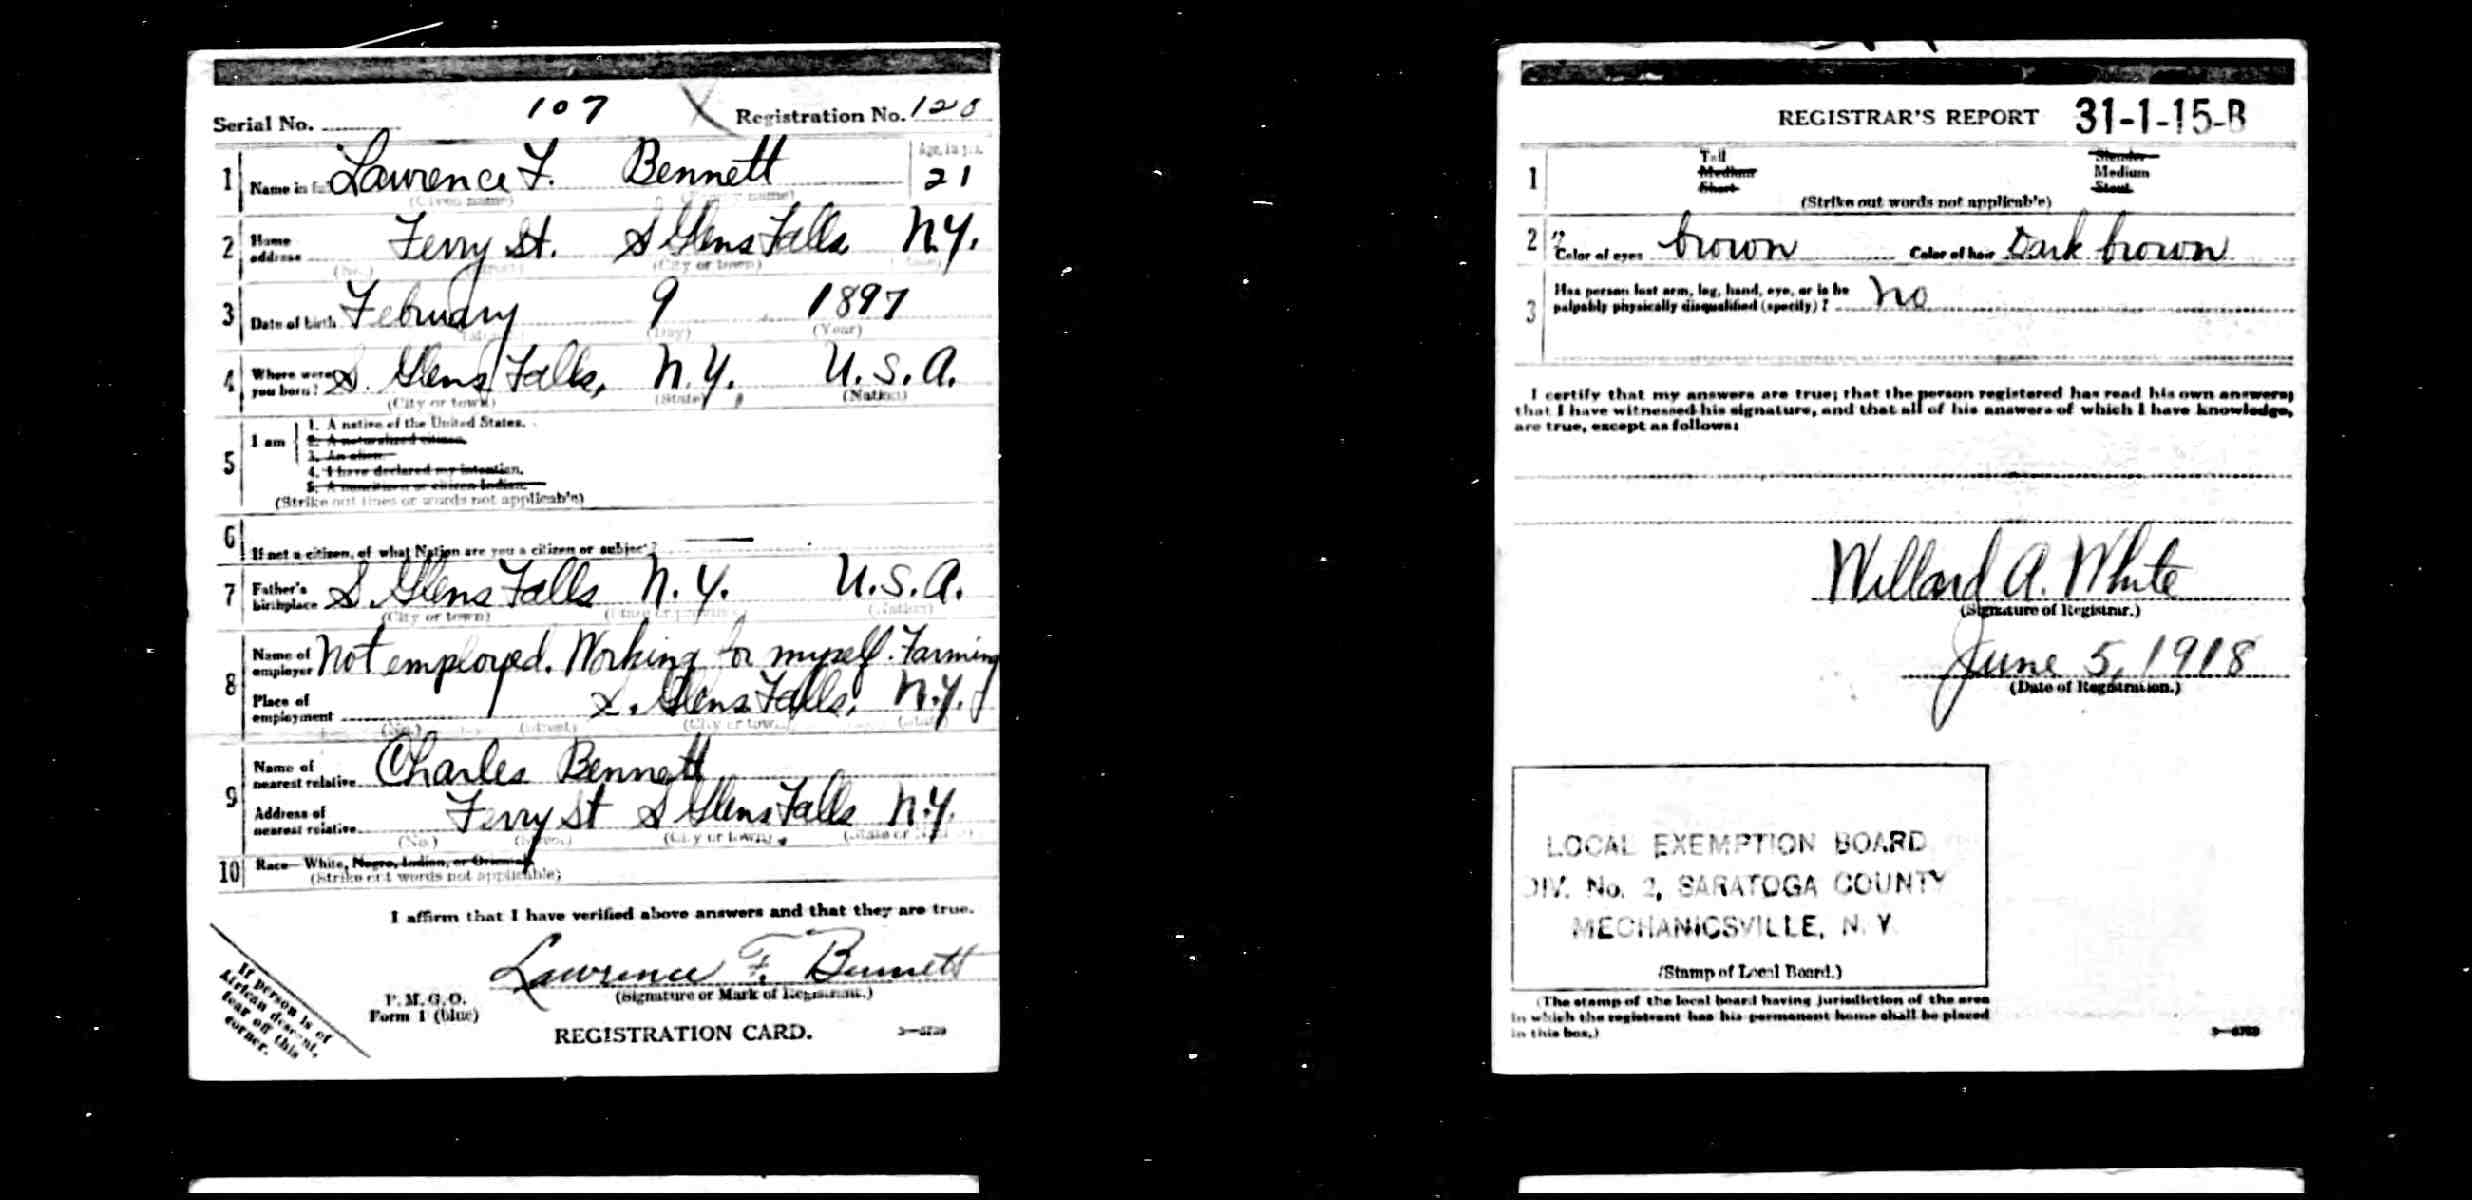 107
Serial No. Registration No. 120
1 Name in full Lawrence F. Bennett Age, in yrs. 21
(Given name) (Family name)
2 Home address Ferry St. S Glens Falls N.Y.
(No.) (Street) (City or town) (State)
3 Date of birth February 9 1897
(Month) (Day) (Year)
4 Where were you born? S. Glens Falls, N.Y. U.S.A.
(City or town) (State) (Nation)
5 I am
1. A native of the United States.
2. A naturalized citizen.
3. An alien.
4. I have declared my intention.
5. A noncitizen or citizen Indian.
(Strike out lines or words not applicable)
6 If not a citizen, of what Nation are you a citizen or subject?
7 Father's birthplace S. Glens Falls N.Y. U.S.A.
(City or town) (State or province) (Nation)
8 Name of employer Not employed. Working for myself. Farming
Place of employment S. Glens Falls, N.Y.
(No.) (Street) (City or town) (State)
9 Name of nearest relative Charles Bennett
Address of nearest relative Ferry St S Glens Falls N.Y.
(No.) (Street) (City or town) (State or Nation)
10 Race—White, Negro, Indian, or Oriental
(Strike out words not applicable)
I affirm that I have verified above answers and that they are true.
Lawrence F. Bennett
(Signature or Mark of Registrant.)
P. M. G. O.
Form 1 (blue)
REGISTRATION CARD.
If person is of
African descent,
tear off this
corner.
REGISTRAR'S REPORT 31-1-15-B
1 Tall Slender
Medium Medium
Short Stout
(Strike out words not applicable)
2 Color of eyes brown Color of hair Dark brown
3 Has person lost arm, leg, hand, eye, or is he
palpably physically disqualified (specify)? no
I certify that my answers are true; that the person registered has read his own answers;
that I have witnessed his signature, and that all of his answers of which I have knowledge,
are true, except as follows:
Willard A. White
(Signature of Registrar.)
June 5, 1918
(Date of Registration.)
LOCAL EXEMPTION BOARD
DIV. No. 2, SARATOGA COUNTY
MECHANICSVILLE, N. Y.
(Stamp of Local Board.)
(The stamp of the local board having jurisdiction of the area
in which the registrant has his permanent home shall be placed
in this box.)